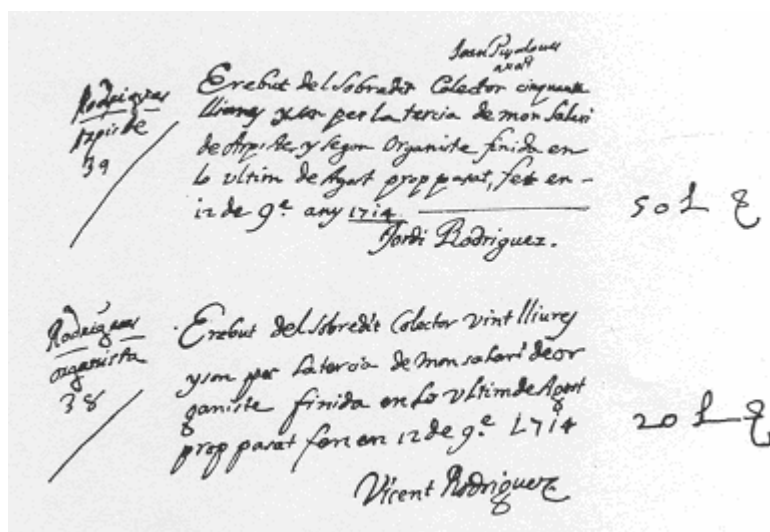 Rodrigues
Arpiste
39
E rebut del sobredit Colector cinquanta
lliures y son per la tercia de mon salari
de Arpiste, y segon Organiste finida en
lo ultim de Agost prop pasat, fet en
12 de 9.e any 1714
Jordi Rodriguez.
50 L
Rodrigues
organista
38
E rebut del sobredit Colector vint lliures
y son per la tercia de mon salari de or
ganiste finida en lo ultim de Agost
prop pasat fon en 12 de 9.e 1714
Vicent Rodriguez
20 L